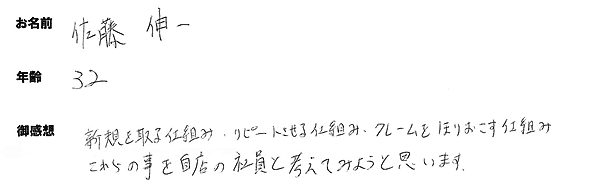 お名前 佐藤 伸一
年齢 32
御感想 新規を取る仕組み、リピートさせる仕組み、クレームをほりおこす仕組み
これらの事を自店の社員と考えてみようと思います。